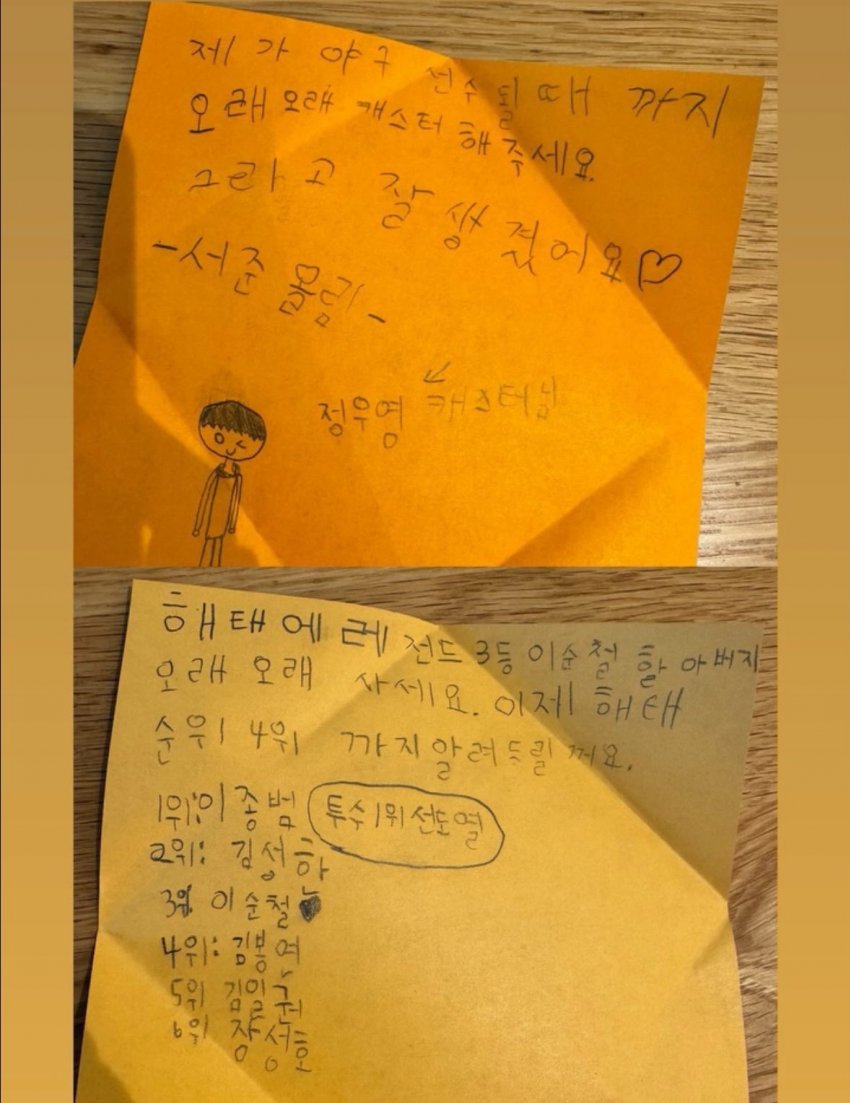 제가 야구 선수 될 때 까지
오래오래 캐스터 해 주세요.
그라고 잘 생겼어요♡
-서준 올림-
정우영 캐스터님
해태에 레전드 3등 이순철 할아버지
오래 오래 사세요. 이제 해태
순위 4위 까지 알려드릴꺼요.
1위:이종범
투수1위 선도열
2위: 김성하
3위 이순철♥
4위: 김봉여
5위 김일궈
6위 장성호